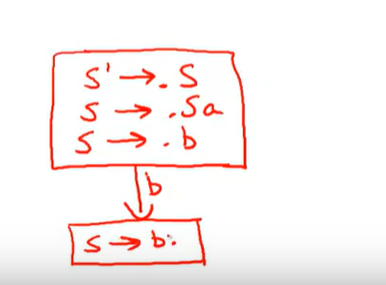 S' → .S
S → .Sa
S → .b
b
S → b.